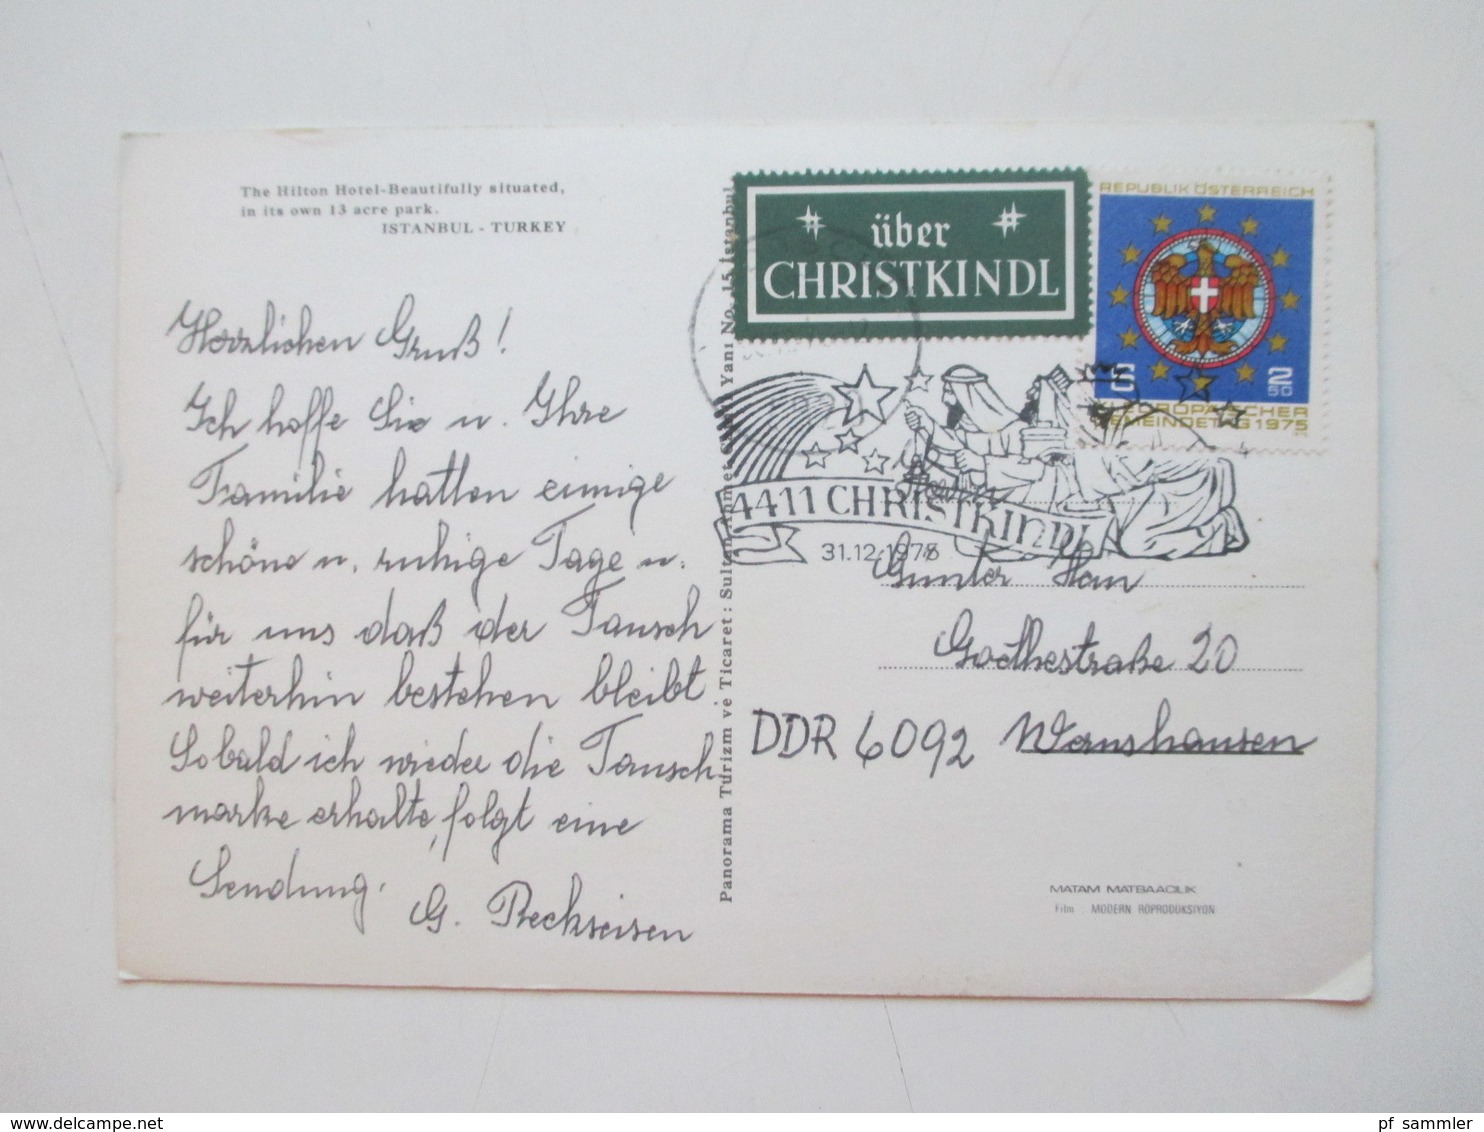 The Hilton Hotel-Beautifully situated,
in its own 13 acre park.
ISTANBUL - TURKEY
Herzlichen Gruß!
Ich hoffe Sie u. Ihre
Familie hatten einige
schöne u. ruhige Tage u.
für uns daß der Tausch
weiterhin bestehen bleibt
Sobald ich wieder die Tausch
marke erhalte, folgt eine
Sendung.
G. Reckseisen
Panorama Turizm ve Ticaret : Sultan Ahmet Yanı No. 15 İstanbul
über
CHRISTKINDL
REPUBLIK ÖSTERREICH
2
50
EUROPÄISCHER
GEMEINDETAG 1975
4411 CHRISTKINDL
31.12.1976
Herrn
Gunter Han
Goethestraße 20
DDR 6092 Wernshausen
MATAM MATBAACILIK
Film : MODERN RÖPRODÜKSİYON
pf_sammler
www.delcampe.net